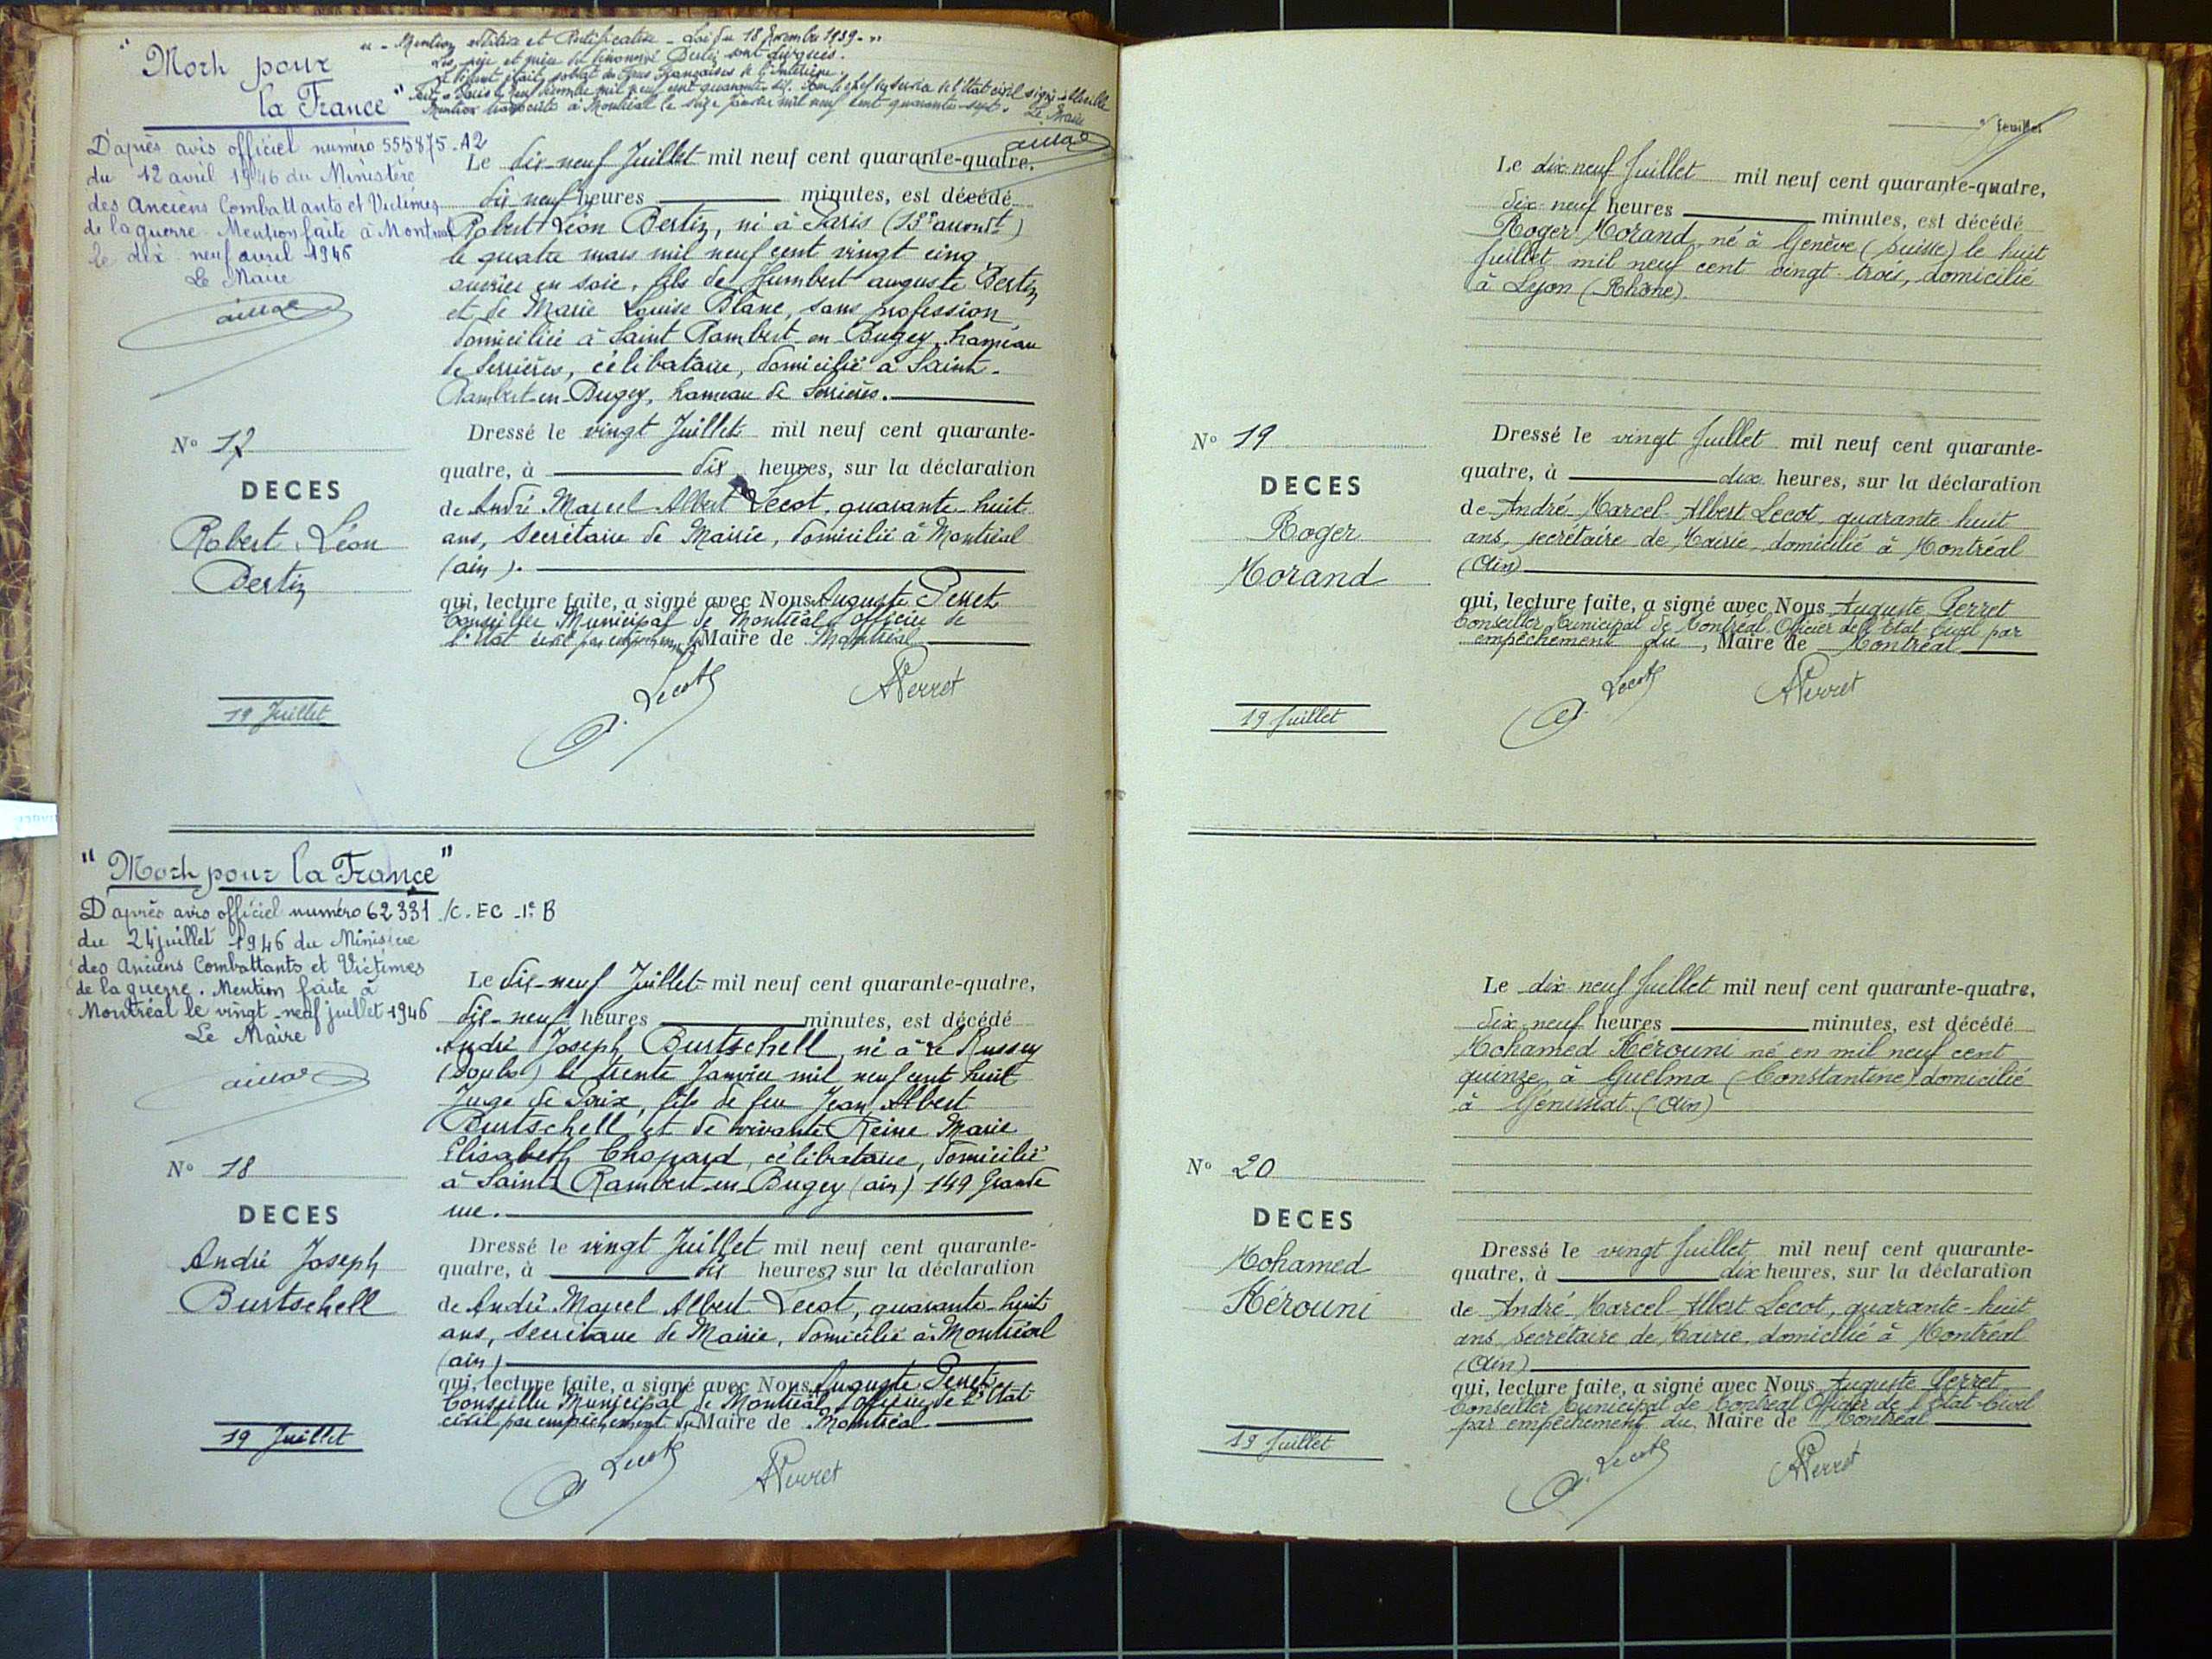 "Mort pour
la France"
D'après avis officiel numéro 555875-A2
du 12 avril 1946 du Ministère
des Anciens Combattants et Victimes
de la guerre. Mention faite à Montréal
le dix neuf avril 1946
Le Maire
"- Mention additive et Rectificative - Loi du 18 Novembre 1939 - "
Les père et mère du dénommé Bertin sont
Le défunt était soldat des Forces Françaises de l'Intérieur.
mil neuf cent quarante six. le chef du service de l'état civil signé
Mention transcrite à Montréal le seize janvier mil neuf cent quarante sept. Le Maire
Le dix-neuf Juillet mil neuf cent quarante-quatre,
dix neuf heures minutes, est décédé
Robert Léon Bertin, né à Paris (18e arrondt)
le quatre mars mil neuf cent vingt cinq,
ouvrier en soie, fils de Humbert auguste Bertin
et de Marie Louise Blanc, sans profession,
domiciliée à Saint Rambert en Bugey, hameau
de Serrières, célibataire, domicilié à Saint-
Rambert-en-Bugey, hameau de Serrières.
Nº 17
DECES
Robert Léon
Bertin
19 Juillet
Dressé le vingt Juillet mil neuf cent quarante-
quatre, à dix heures, sur la déclaration
de André Marcel Albert Lecot, quarante-huit
ans, Secrétaire de Mairie, domicilié à Montréal
(ain).
qui, lecture faite, a signé avec Nous Auguste Perret
Conseiller Municipal de Montréal officier de
l'Etat civil par empêchement du Maire de Montréal
A. Lecot APerret
"Mort pour la France"
D'après avis officiel numéro 62331 /C. EC -1e B
du 24 juillet 1946 du Ministère
des Anciens Combattants et Victimes
de la guerre. Mention faite à
Montréal le vingt-neuf juillet 1946
Le Maire
Le dix-neuf Juillet mil neuf cent quarante-quatre,
dix-neuf heures minutes, est décédé
André Joseph Burtschell, né à Le Russey
(Doubs) le trente Janvier mil neuf cent huit
Juge de Paix, fils de feu Jean Albert
Burtschell et de vivante Reine Marie
Elisabeth Chopard, célibataire, domicilié
à Saint Rambert-en-Bugey (ain) 149 Grande
rue.
Nº 18
DECES
André Joseph
Burtschell
19 Juillet
Dressé le vingt Juillet mil neuf cent quarante-
quatre, à dix heures, sur la déclaration
de André Marcel Albert Lecot, quarante-huit
ans, Secrétaire de Mairie, domicilié à Montréal
(ain)
qui, lecture faite, a signé avec Nous Auguste Perret
Conseiller Municipal de Montréal officier de l'Etat
civil par empêchement du Maire de Montréal
A. Lecot APerret
feuillet
Le dix neuf Juillet mil neuf cent quarante-quatre,
dix-neuf heures minutes, est décédé
Roger Morand né à Genève (Suisse) le huit
Juillet mil neuf cent vingt-trois, domicilié
à Lyon (Rhône).
Nº 19
DECES
Roger
Morand
19 Juillet
Dressé le vingt Juillet mil neuf cent quarante-
quatre, à dix heures, sur la déclaration
de André Marcel Albert Lecot, quarante-huit
ans, secrétaire de Mairie, domicilié à Montréal
(Ain)
qui, lecture faite, a signé avec Nous Auguste Perret
Conseiller Municipal de Montréal Officier de l'Etat Civil par
empêchement du, Maire de Montréal
A. Lecot APerret
Le dix neuf Juillet mil neuf cent quarante-quatre,
dix neuf heures minutes, est décédé
Mohamed Kérouni né en mil neuf cent
quinze à Guelma (Constantine) domicilié
à Génissiat (Ain)
Nº 20
DECES
Mohamed
Kérouni
19 Juillet
Dressé le vingt Juillet mil neuf cent quarante-
quatre, à dix heures, sur la déclaration
de André Marcel Albert Lecot, quarante-huit
ans, Secrétaire de Mairie, domicilié à Montréal
(Ain)
qui, lecture faite, a signé avec Nous Auguste Perret
Conseiller Municipal de Montréal Officier de l'Etat-Civil
par empêchement du, Maire de Montréal
A. Lecot APerret